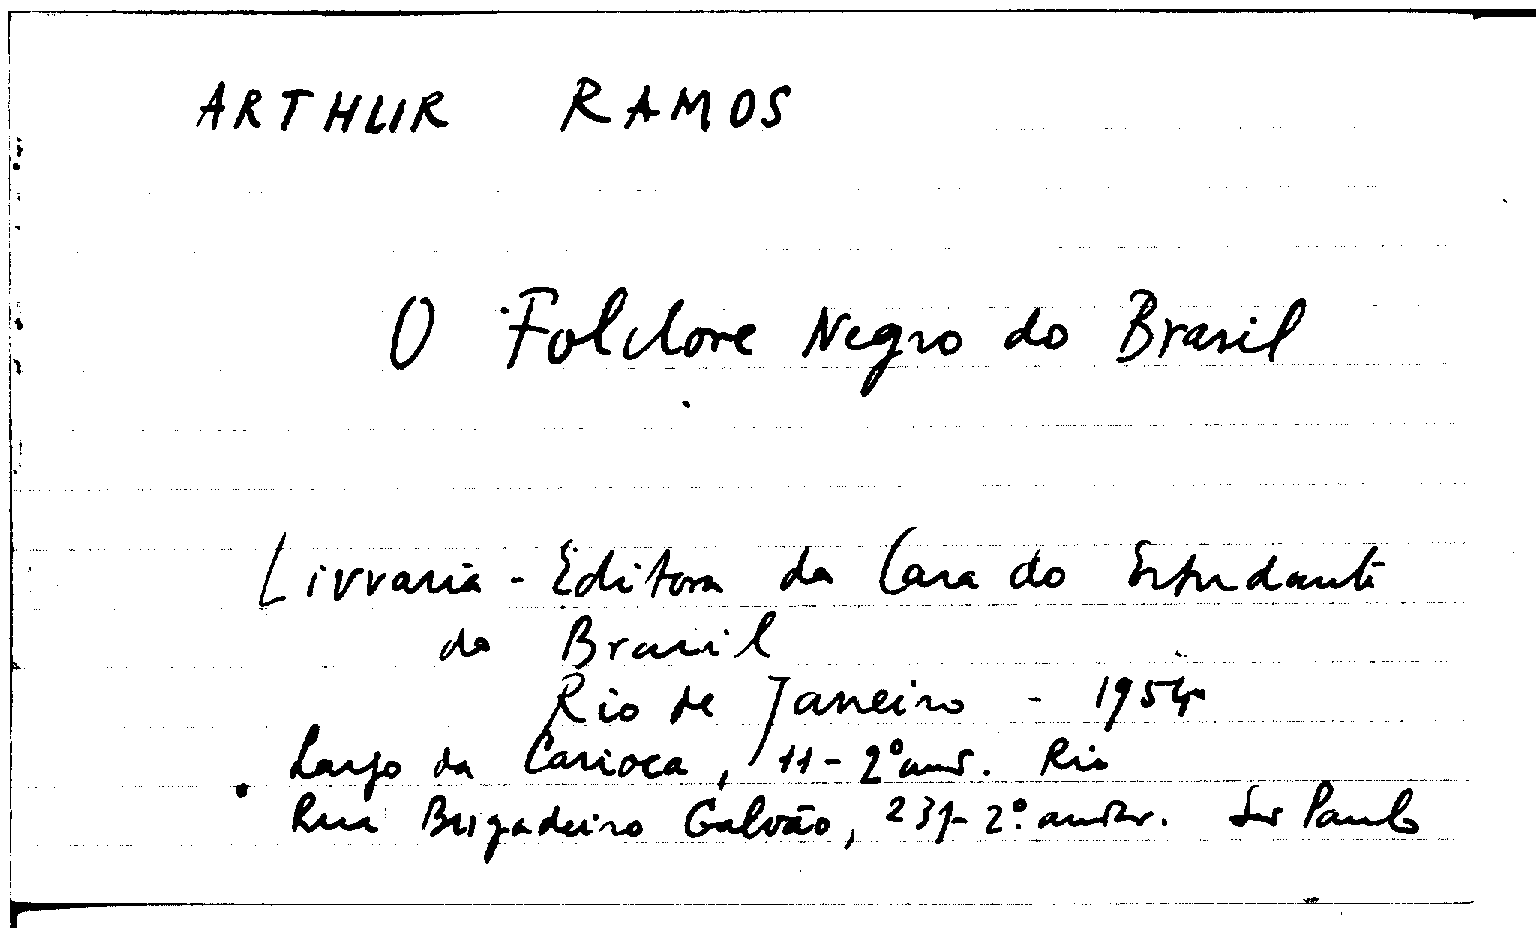 ARTHUR RAMOS
O Folclore Negro do Brasil
Livraria - Editora da Casa do Estudante
do Brasil
Rio de Janeiro - 1954
Largo da Carioca, 11 - 2º and. Rio
Rua Brigadeiro Galvão, 2º andar. São Paulo